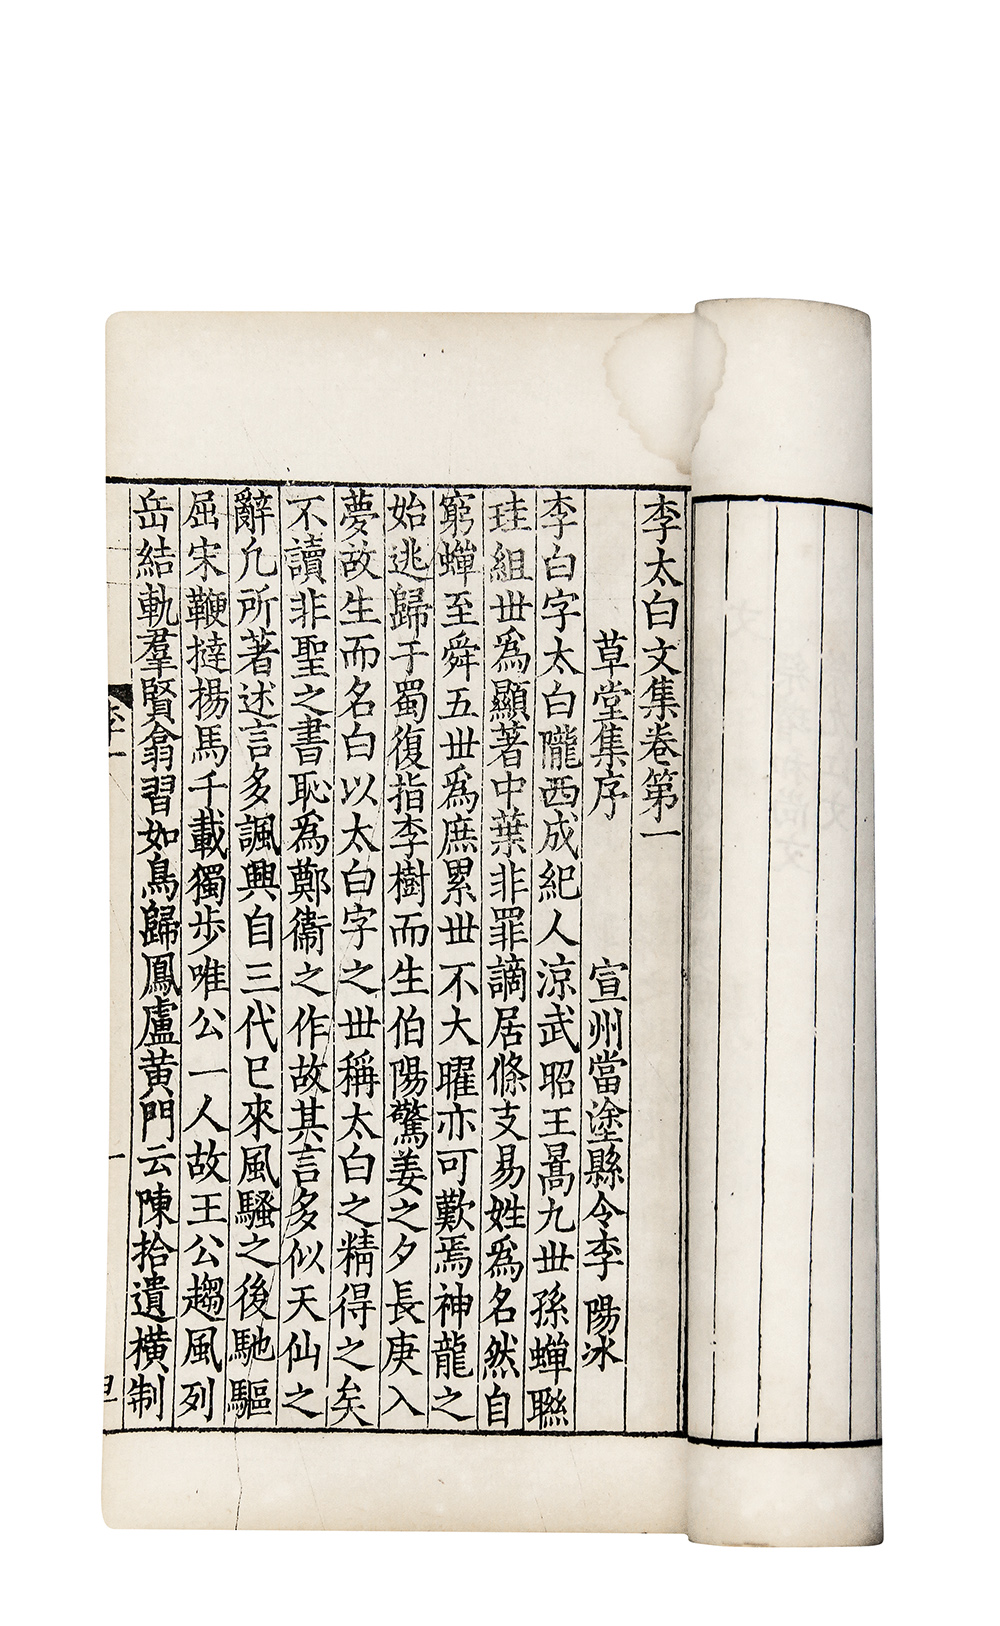 李太白文集卷第一
草堂集序 宣州當塗縣令李 陽冰
李白字太白隴西成紀人涼武昭王暠九丗孫蟬聯
珪組丗爲顯著中葉非罪謫居條支易姓爲名然自
窮蟬至舜五丗爲庶累丗不大曜亦可歎焉神龍之
始逃歸于蜀復指李樹而生伯陽驚姜之夕長庚入
夢故生而名白以太白字之丗稱太白之精得之矣
不讀非聖之書恥爲鄭衞之作故其言多似天仙之
辭凣所著述言多諷興自三代已來風騷之後馳驅
屈宋鞭撻揚馬千載獨步唯公一人故王公趨風列
岳結軌羣賢翕習如鳥歸鳳盧黃門云陳拾遺橫制